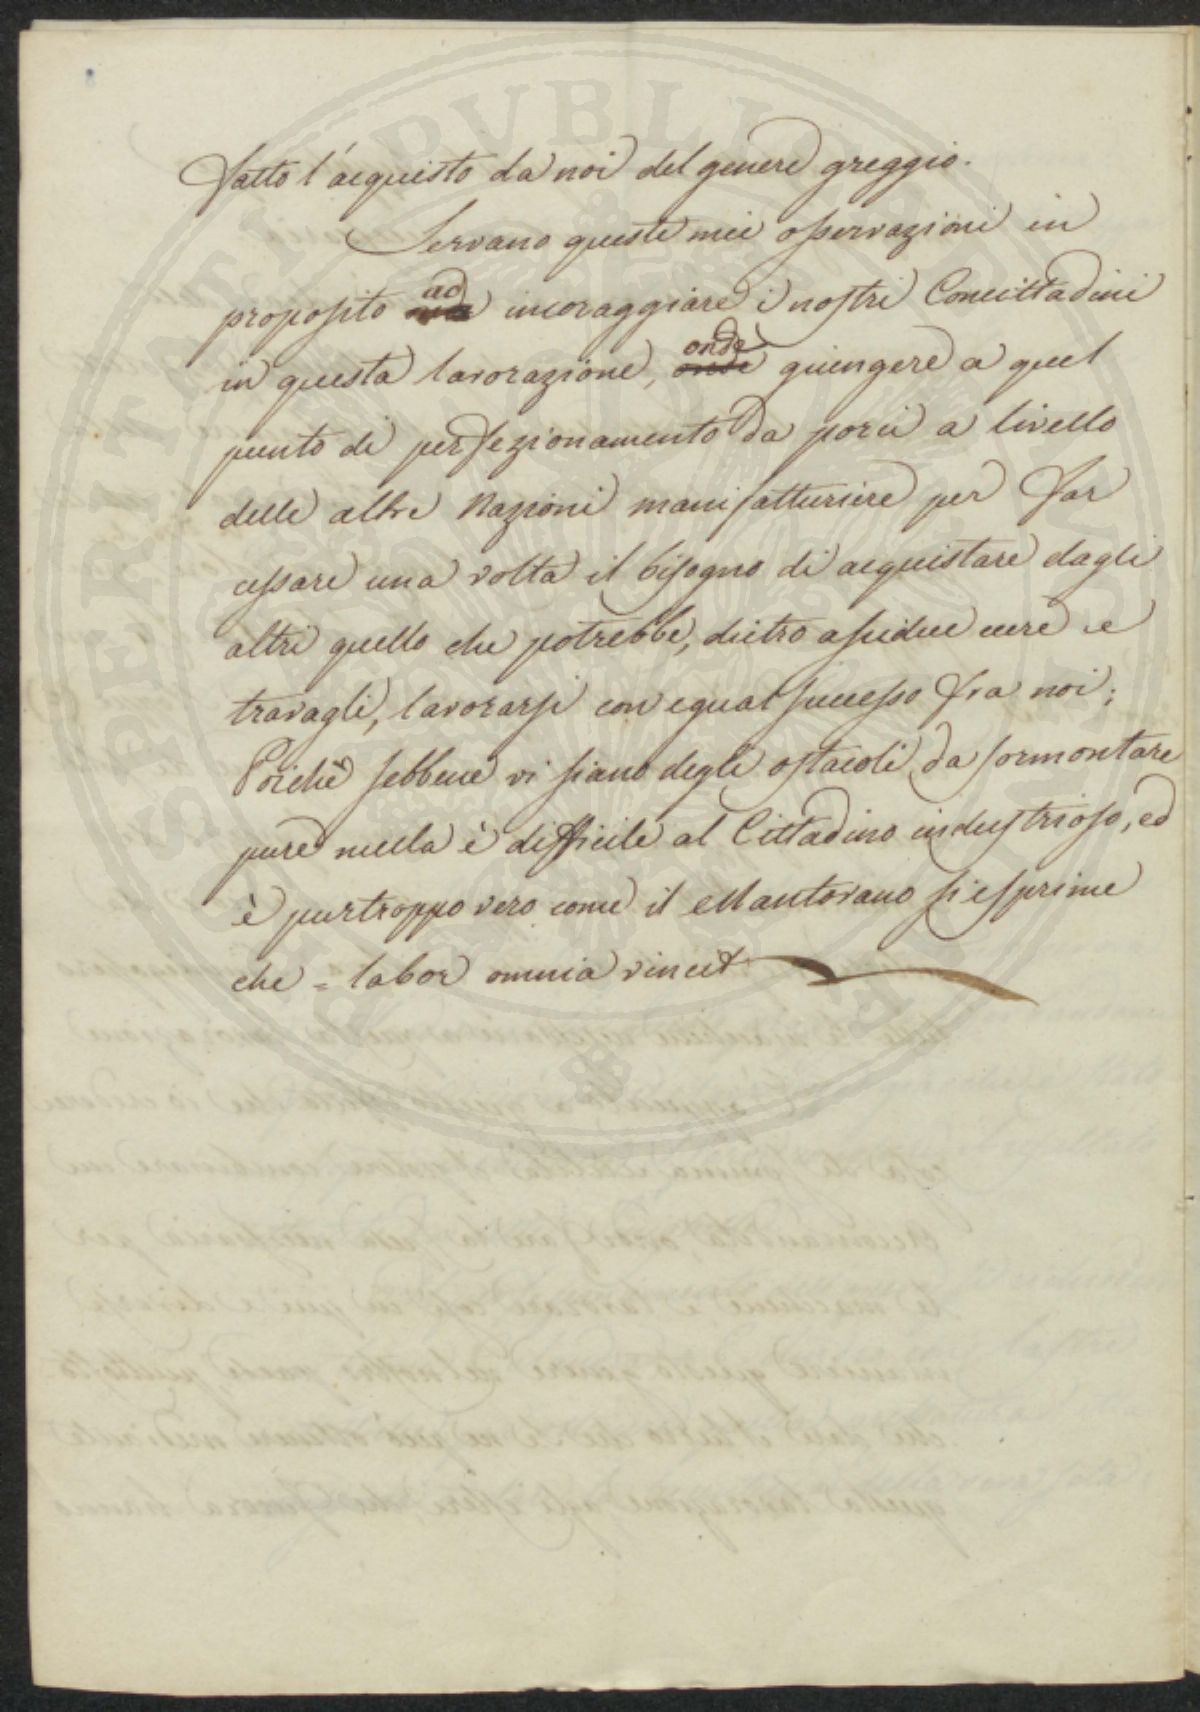 fatto l'acquisto da noi del genere greggio.
Servano queste mie osservazioni in
proposito ad incoraggiare i nostri Concittadini
in questa lavorazione, onde giungere a quel
punto di perfezionamento da porci a livello
delle altre Nazioni manifatturiere per far
cessare una volta il bisogno di acquistare dagli
altri quello che potrebbe, dietro assidue cure e
travagli, lavorarsi con egual successo fra noi;
Poichè sebbene vi siano degli ostacoli da sormontare
pure nulla è difficile al Cittadino industrioso, ed
è purtroppo vero come il Mantovano si esprime
che = labor omnia vincit